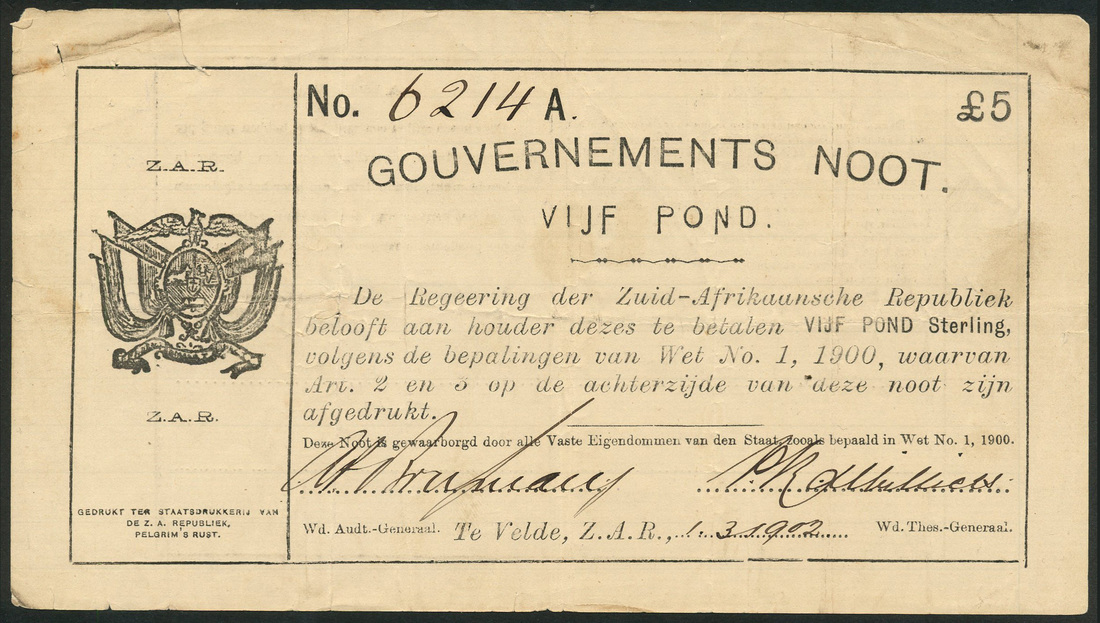 No. 6214 A.
£5
GOUVERNEMENTS NOOT.
VIJF POND.
De Regeering der Zuid-Afrikaansche Republiek
belooft aan houder dezes te betalen VIJF POND Sterling,
volgens de bepalingen van Wet No. 1, 1900, waarvan
Art. 2 en 3 op de achterzijde van deze noot zijn
afgedrukt.
Deze Noot is gewaarborgd door alle Vaste Eigendommen van den Staat, zooals bepaald in Wet No. 1, 1900.
Wd. Audt.-Generaal.
Te Velde, Z.A.R., 1.3.1902
Wd. Thes.-Generaal.
Z.A.R.
Z.A.R.
GEDRUKT TER STAATSDRUKKERIJ VAN
DE Z. A. REPUBLIEK,
PELGRIM'S RUST.